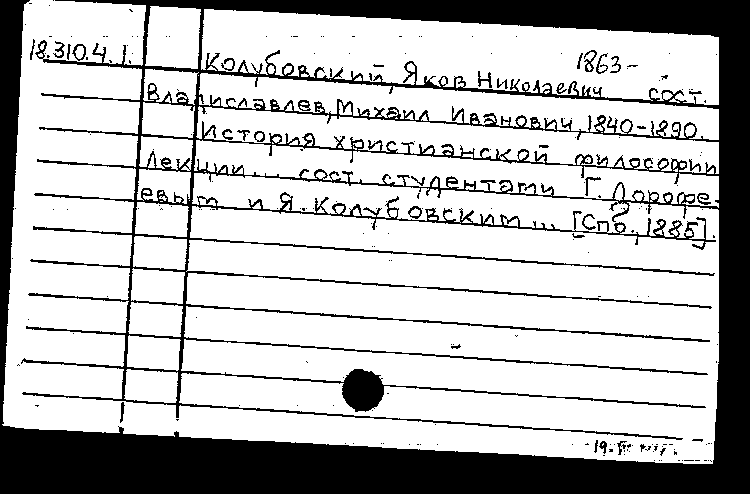 18.310.4.1. Колубовский, Яков Николаевич 1863- сост.
Владиславлев, Михаил Иванович, 1840-1890.
История христианской философии
Лекции... сост. студентами Г. Дорофе-
евым и Я. Колубовским... [Спб., 1885].
19.